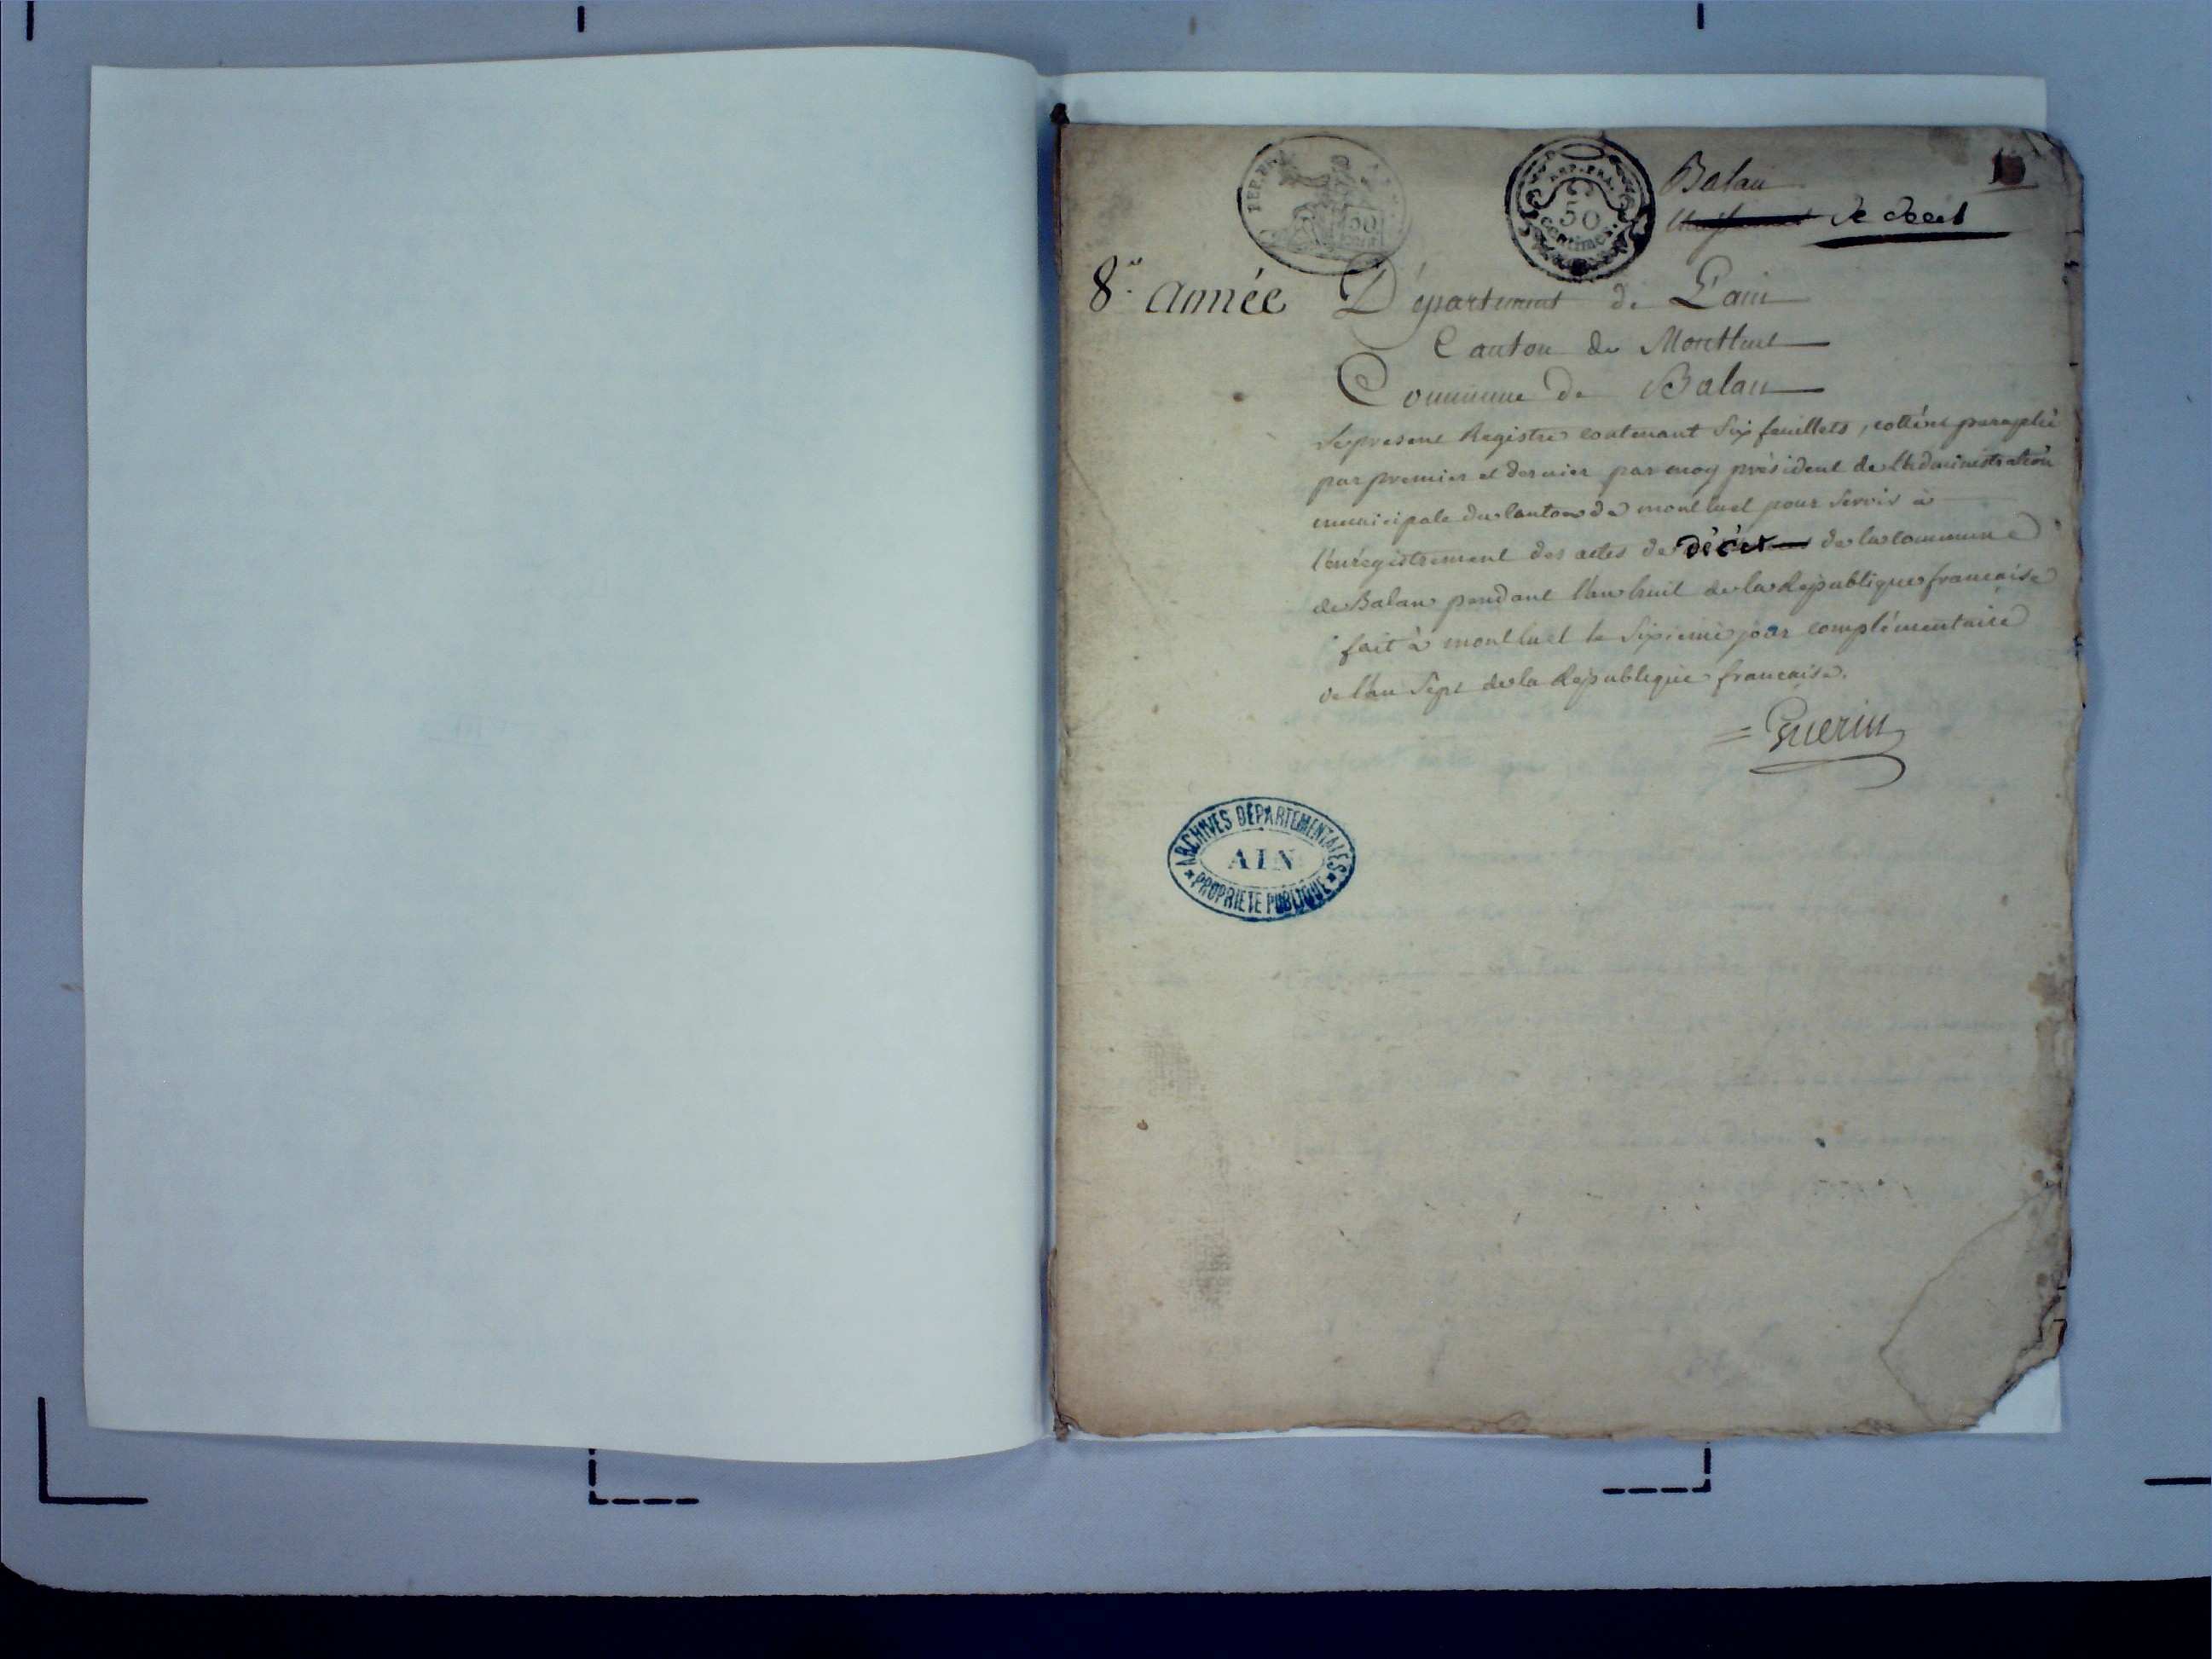 REP. FRA.
50
centimes.
Balan
de deces
8.e année
Département de L'ain
Canton de Montluel
Commune de Balan
Le present Registre contenant Six feuillets, cotténs paraphé
par premier et dernier par moy président de l'administration
municipale du Canton de montluel pour Servir à
l'enrégistrement des actes de décès de la commune
de Balan pendant l'an huit de la République francaise
fait à montluel le Sixieme jour complémentaire
de l'an Sept de la République francaise.
Guerin
ARCHIVES DÉPARTEMENTALES
AIN
PROPRIETE PUBLIQUE